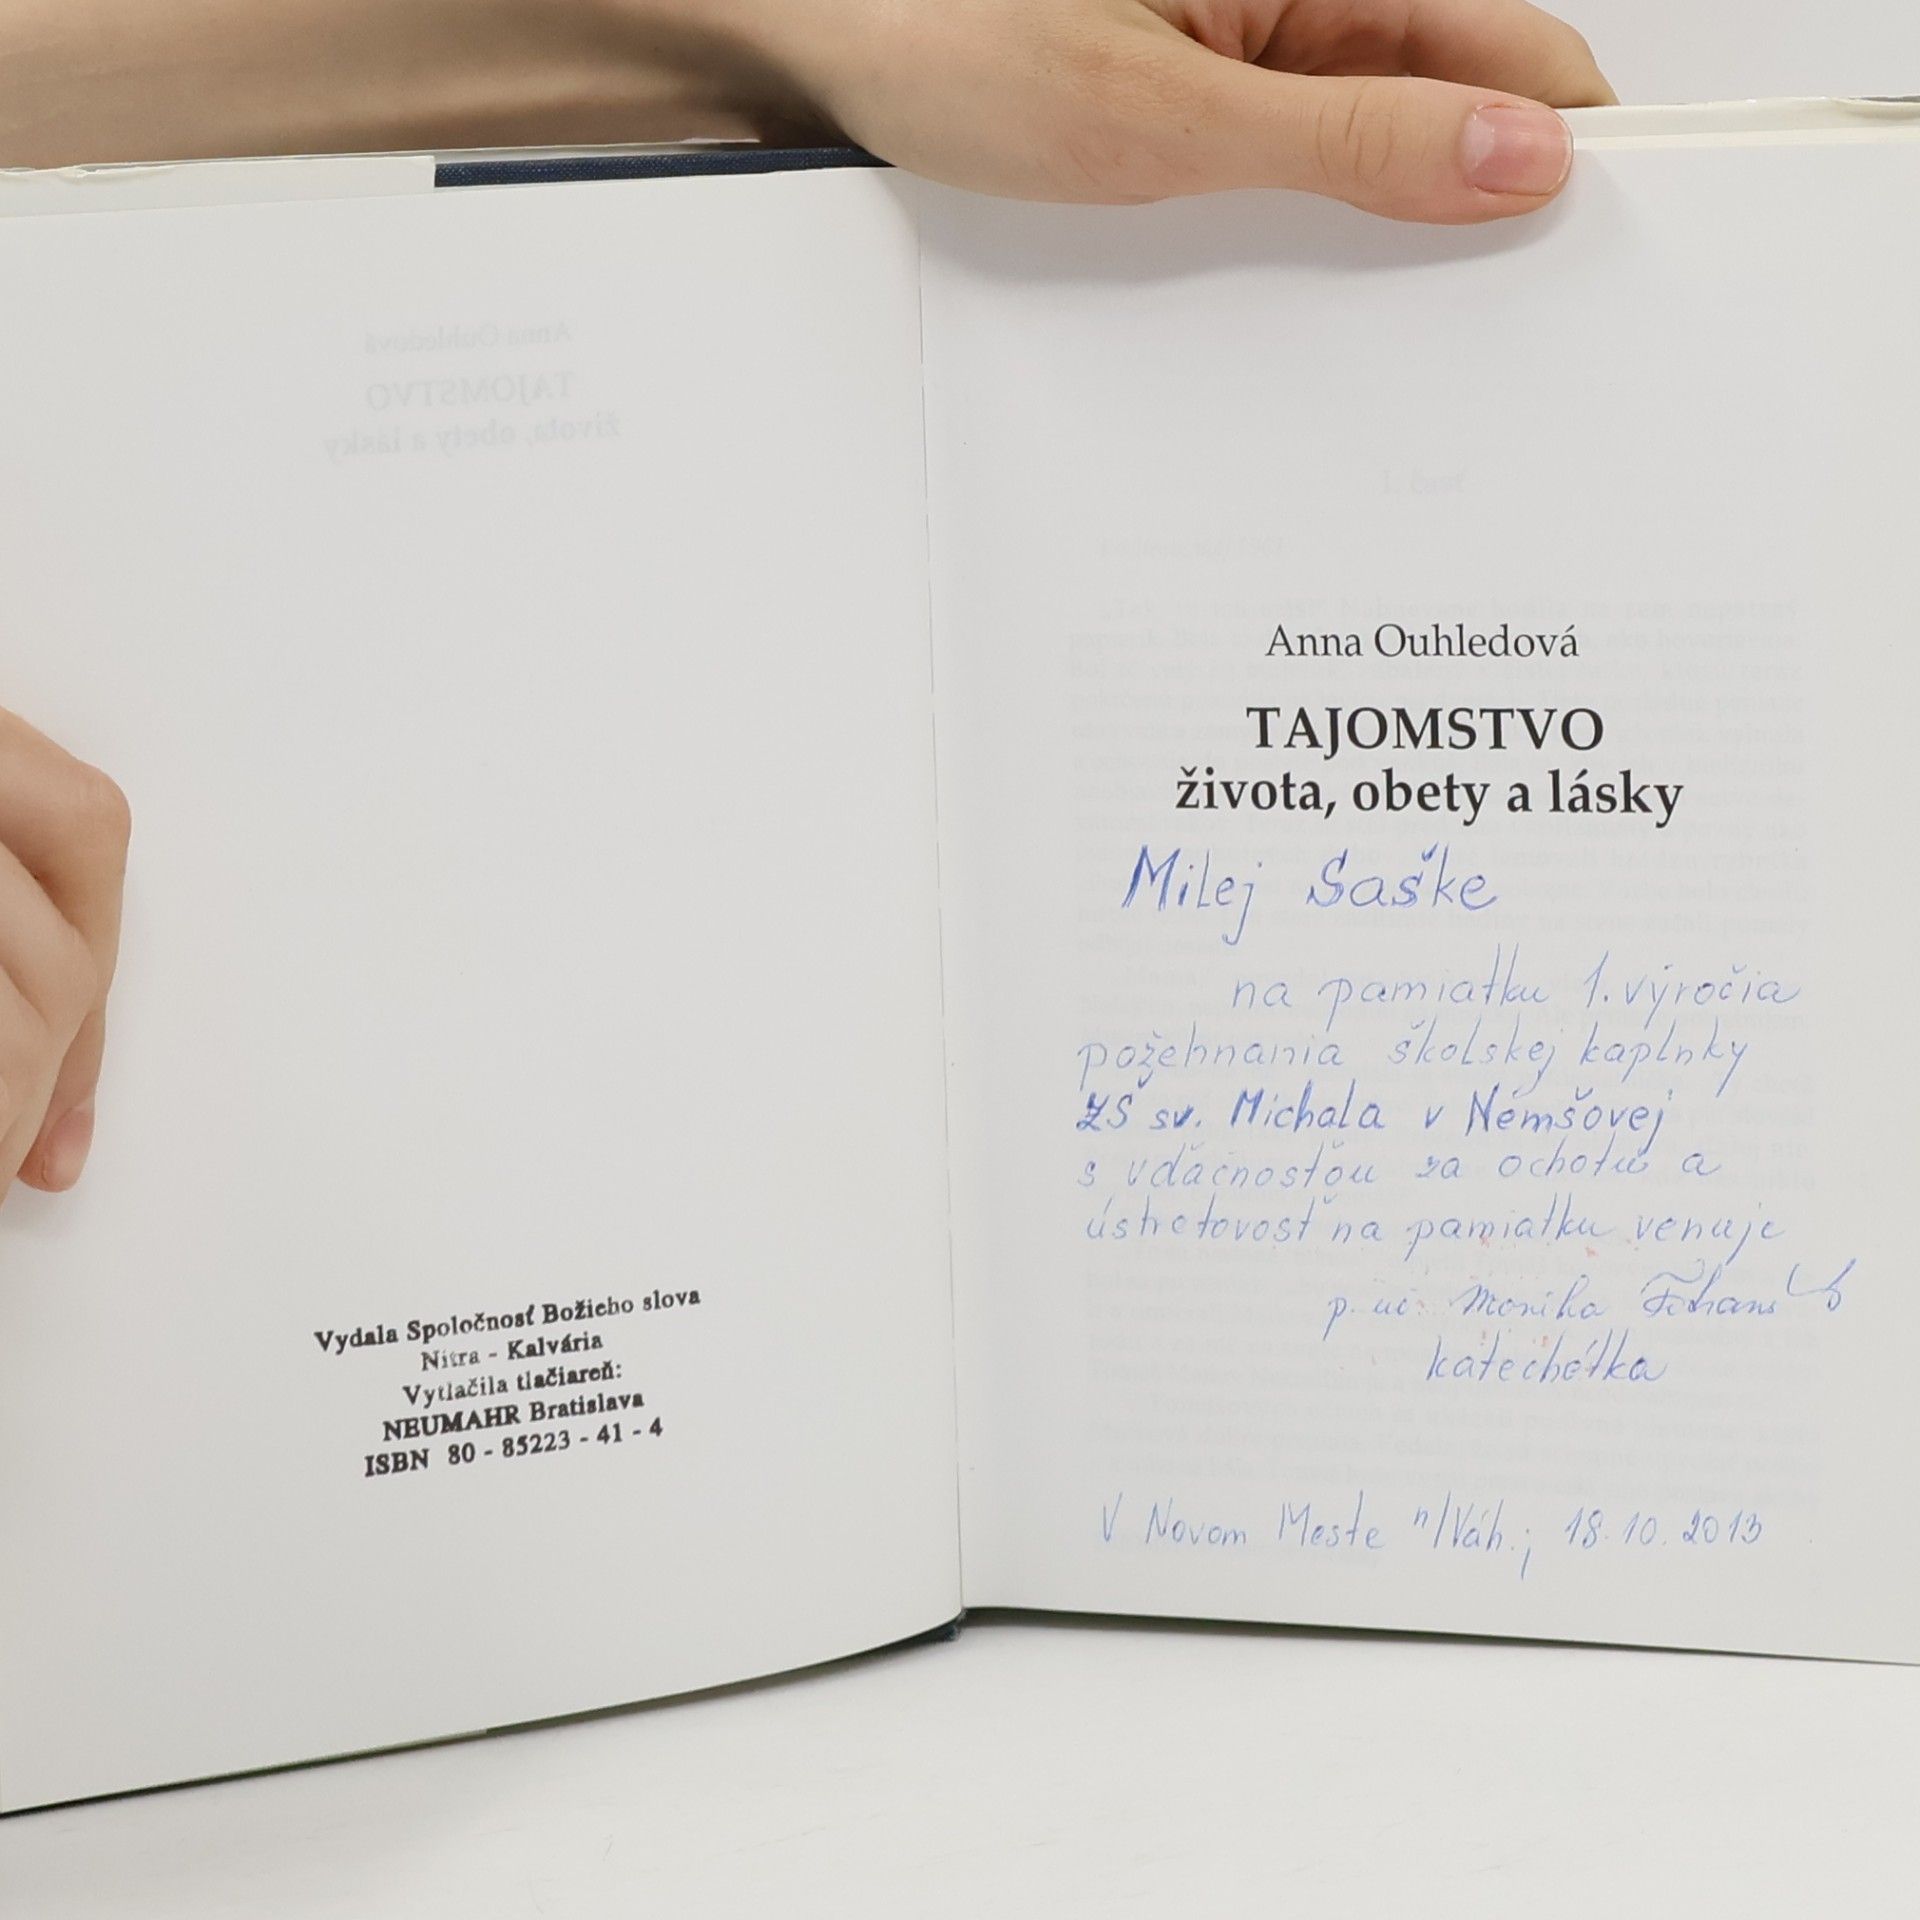 Vydala Spoločnosť Božieho slova
Nitra - Kalvária
Vytlačila tlačiareň:
NEUMAHR Bratislava
ISBN 80 - 85223 - 41 - 4
Anna Ouhledová
TAJOMSTVO
života, obety a lásky
Milej Saške
na pamiatku 1. výročia
požehnania školskej kaplnky
ZŠ sv. Michala v Nemšovej
s vďačnosťou za ochotu a
ústretovosť na pamiatku venuje
p. uč. Monika
katechétka
V Novom Meste n/Váh.; 18.10.2013